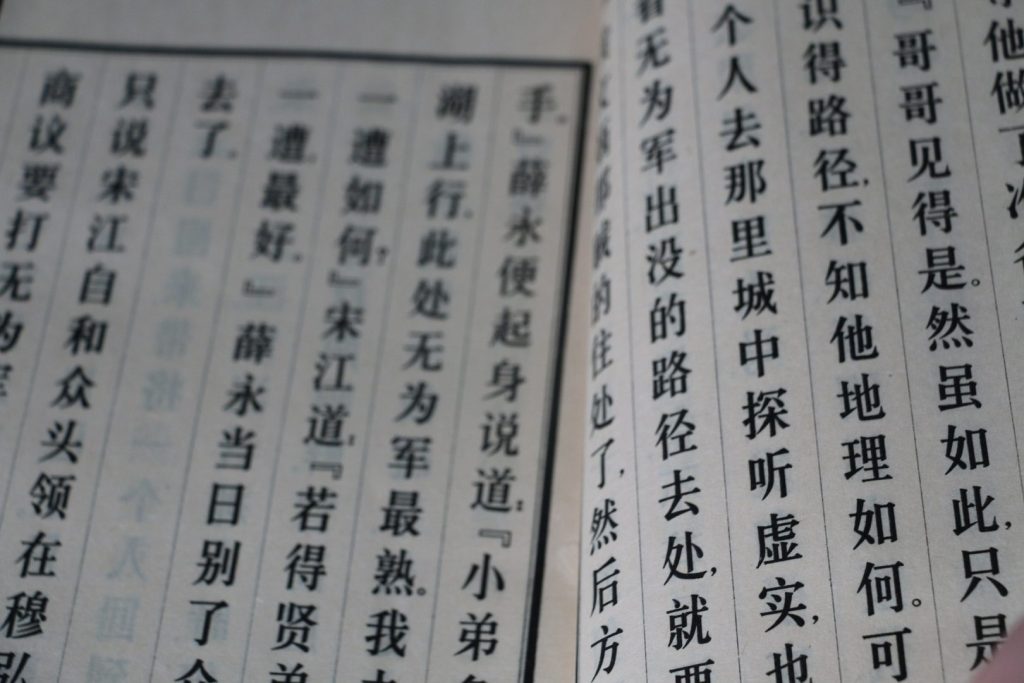 他做了
『哥哥见得是。然虽如此,只是
识得路径,不知他地理如何。可
个人去那里城中探听虚实,也
看无为军出没的路径去处,就要
那贼的住处了,然后方
手。』薛永便起身说道:『小弟
湖上行,此处无为军最熟。我
一遭如何?』宋江道:『若得贤弟
一遭,最好。』薛永当日别了众
去了。
只说宋江自和众头领在穆弘
商议要打无为军